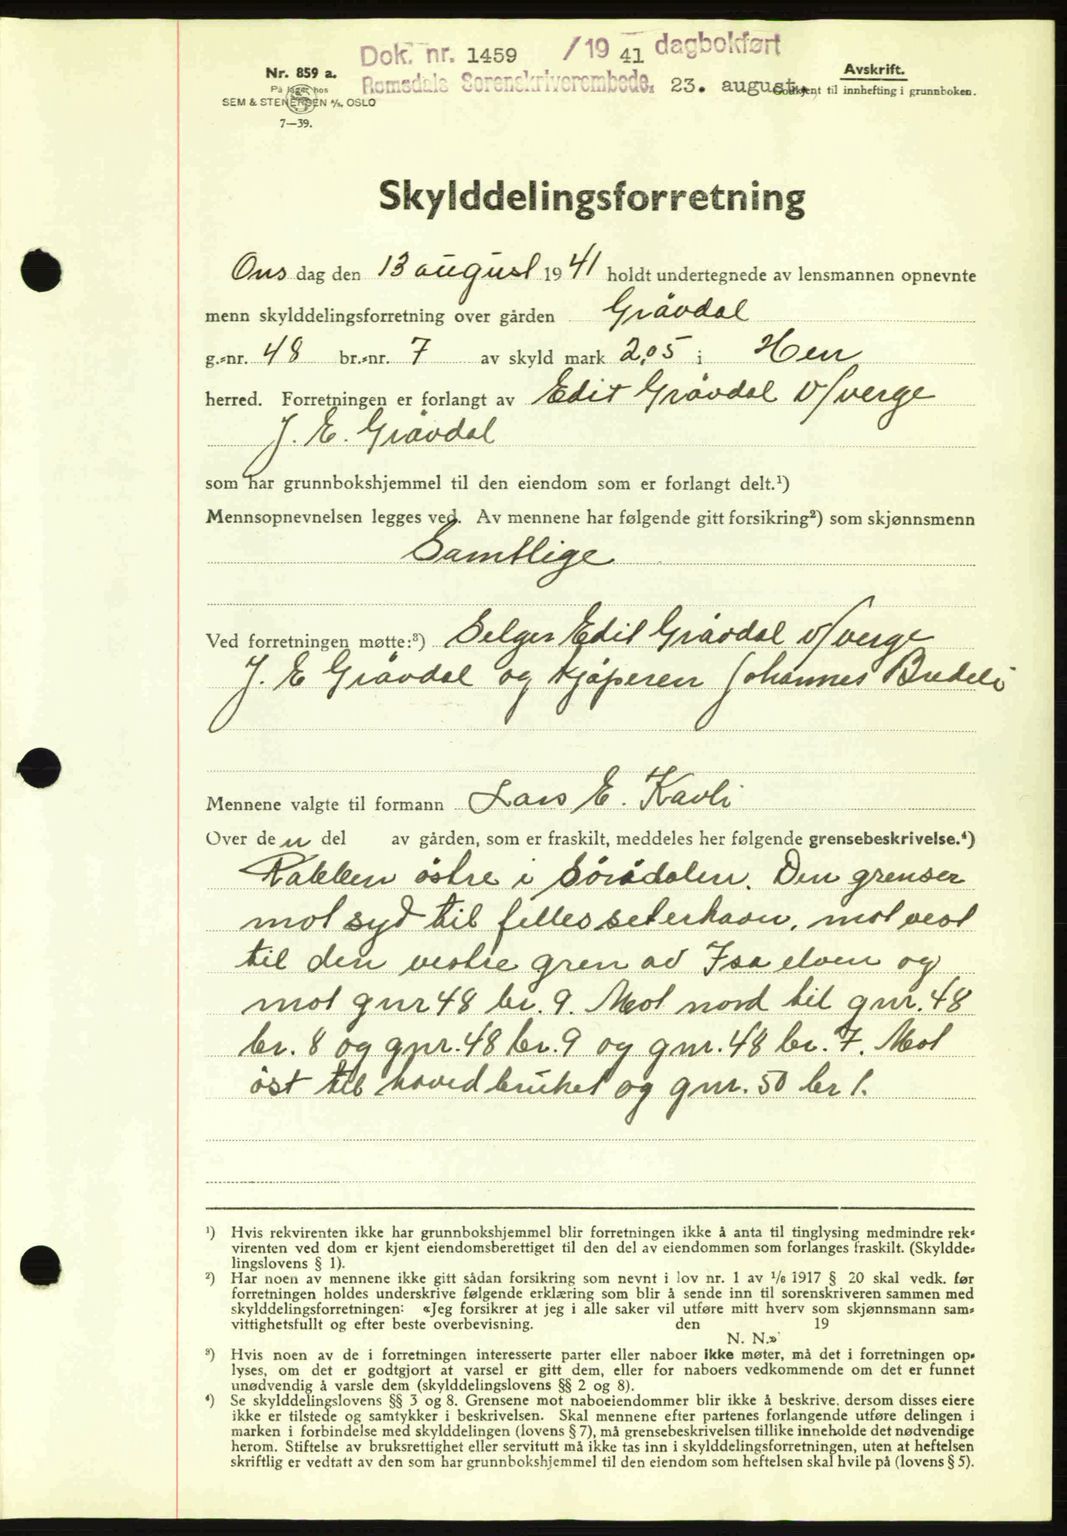 Dok. nr. 1459 /19 41 dagbokført
Romsdals Sorenskriverembede, 23. august.
Nr. 859 a.
På lager hos
SEM & STENERSEN A/S, OSLO
7—39.
Avskrift.
Godkjent til innhefting i grunnboken.
Skylddelingsforretning
Ons dag den 13 august 19 41 holdt undertegnede av lensmannen opnevnte
menn skylddelingsforretning over gården Gråvdal
g.-nr. 48 br.-nr. 7 av skyld mark 2,05 i Hen
herred. Forretningen er forlangt av Edit Gråvdal v/verge
J. E. Gråvdal
som har grunnbokshjemmel til den eiendom som er forlangt delt.¹)
Mennsopnevnelsen legges ved. Av mennene har følgende gitt forsikring²) som skjønnsmenn
Samtlige
Ved forretningen møtte:³) Selger Edit Gråvdal v/verge
J. E Gråvdal og kjøperen Johannes Bredeli
Mennene valgte til formann Lars E. Kavli
Over den del av gården, som er fraskilt, meddeles her følgende grensebeskrivelse.⁴)
Rabben östre i Sörådalen. Den grenser
mot syd til felles seterhavn, mot vest
til den vestre gren av Isa elven og
mot gnr 48 br. 9. Mot nord til gnr. 48
br. 8 og gnr. 48 br. 9 og gnr. 48 br. 7. Mot
öst til hovedbruket og gnr. 50 br 1.
¹) Hvis rekvirenten ikke har grunnbokshjemmel blir forretningen ikke å anta til tinglysing medmindre rek-
virenten ved dom er kjent eiendomsberettiget til den del av eiendommen som forlanges fraskilt. (Skyldde-
lingslovens § 1).
²) Har noen av mennene ikke gitt sådan forsikring som nevnt i lov nr. 1 av 1/6 1917 § 20 skal vedk. før
forretningen holdes underskrive følgende erklæring som blir å sende inn til sorenskriveren sammen med
skylddelingsforretningen: «Jeg forsikrer at jeg i alle saker vil utføre mitt hverv som skjønnsmann sam-
vittighetsfullt og efter beste overbevisning. den 19
N. N.»
³) Hvis noen av de i forretningen interesserte parter eller naboer ikke møter, må det i forretningen op-
lyses, om det er godtgjort at varsel er gitt dem, eller for naboers vedkommende om det er funnet
unødvendig å varsle dem (skylddelingslovens §§ 2 og 8).
⁴) Se skylddelingslovens §§ 3 og 8. Grensene mot naboeiendommer blir ikke å beskrive, dersom disses eiere
ikke er tilstede og samtykker i beskrivelsen. Skal mennene efter partenes forlangende utføre delingen i
marken i forbindelse med skylddelingen (lovens § 7), må grensebeskrivelsen tillike inneholde det nødvendige
herom. Stiftelse av bruksrettighet eller servitutt må ikke tas inn i skylddelingsforretningen, uten at heftelsen
skriftlig er vedtatt av den som har grunnbokshjemmel til den eiendom som heftelsen skal hvile på (lovens § 5).